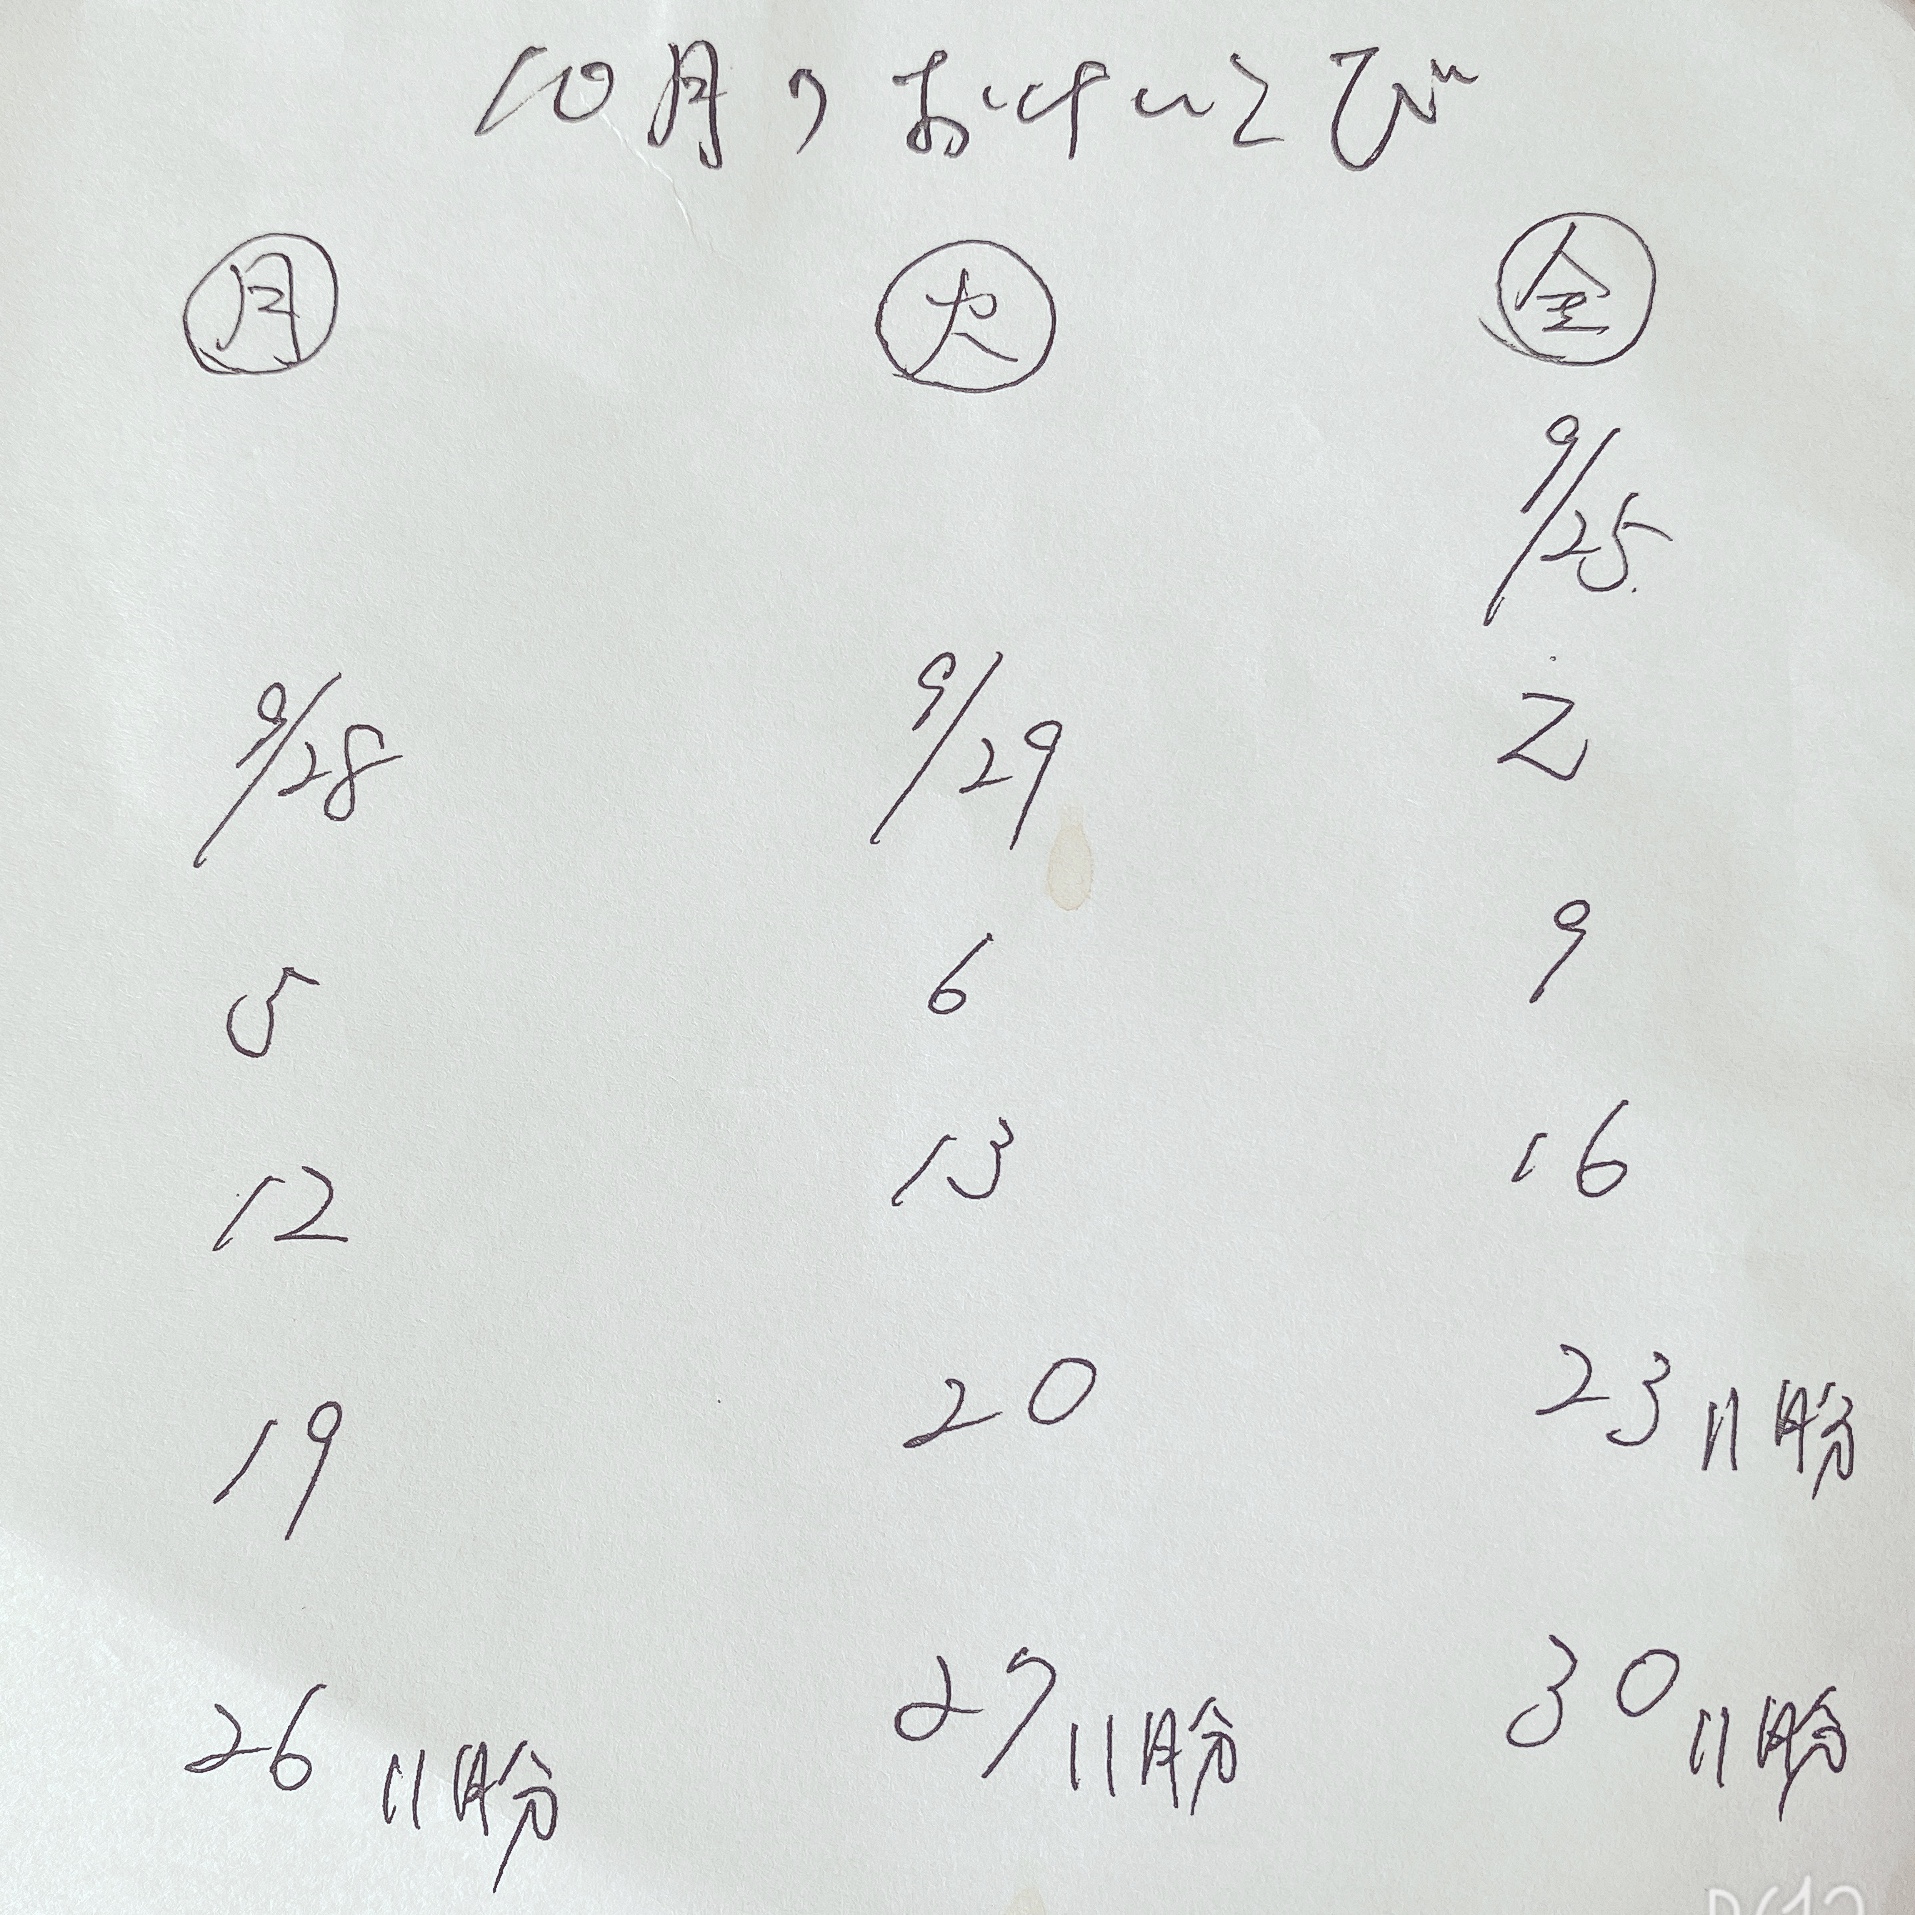 10月のおけいこび
月 火 金
9/25
9/28 9/29 2
5 6 9
12 13 16
19 20 23 11月分
26 11月分 27 11月分 30 11月分